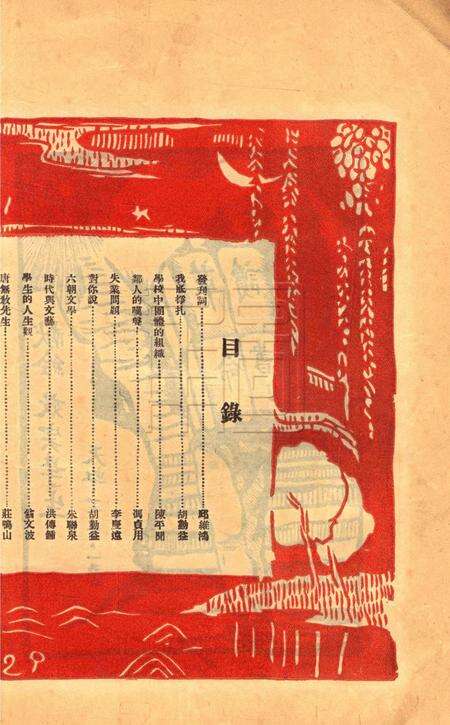 目錄
發刊詞……邱維鴻
我底掙扎……胡勤益
學校中團體的組織……陳平開
鄰人的嘆聲……馮貞用
失業問題……李慶遠
對你說……胡勤益
六朝文學……朱聯泉
時代與文藝……洪傳歸
學生的人生觀……翁文波
唐無敵先生……莊鳴山
29